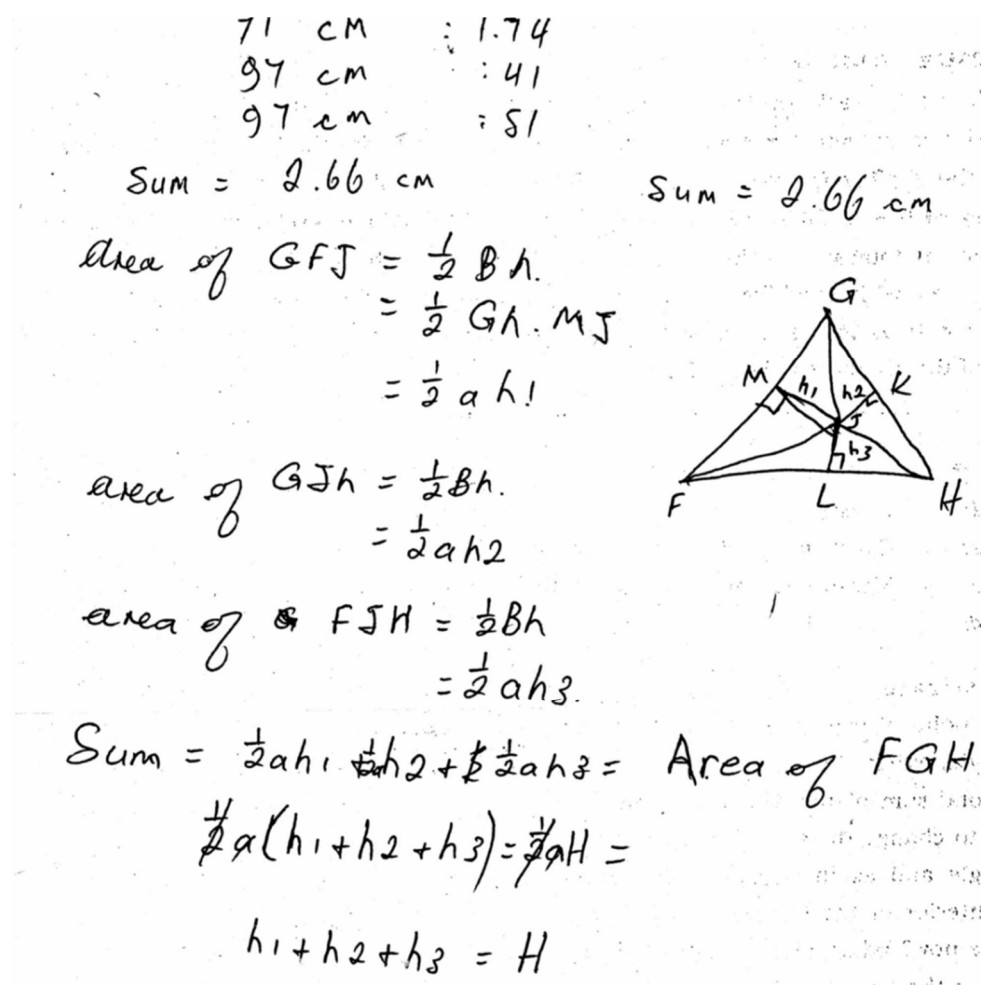 71 cm : 1.74
97 cm : 41
97 cm : 51
Sum = 2.66 cm
Sum = 2.66 cm
Area of GFJ = 1/2 Bh.
= 1/2 Gh. MJ
= 1/2 ah1
area of GJh = 1/2 Bh.
= 1/2 ah2
area of FJH = 1/2 Bh
= 1/2 ah3.
G
M h1 h2 K
J
h3
F L H
Sum = 1/2 ah1 + 1/2 ah2 + 1/2 ah3 = Area of FGH
1/2 a(h1+h2+h3) = 1/2 aH =
h1+h2+h3 = H